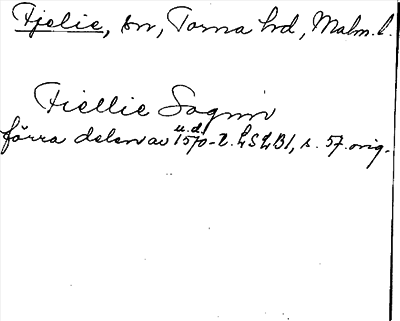 Fjelie, sn, Torna hd, Malm. l.
Fiellie Sognn
u.d.
förra delen av 1570-t. LSLB1, s. 57. orig.